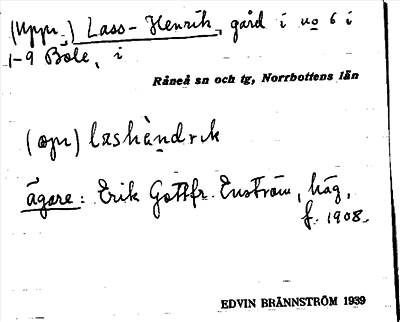 (Uppr.:) Lass-Henrik, gård i no 6 i
1-9 Böle, i
Råneå sn och tg, Norrbottens län
(opr)
ägare: Erik Gottfr. Enström, häg,
f. 1908.
EDVIN BRÄNNSTRÖM 1939